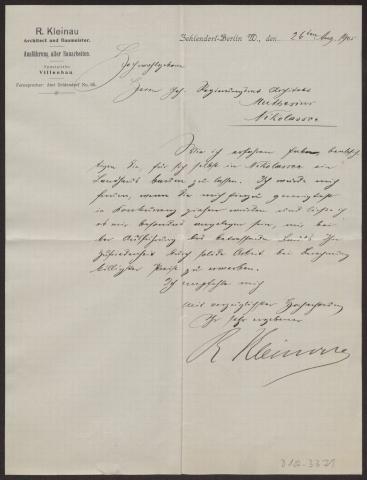 R. Kleinau
Architect und Baumeister.
Ausführung aller Bauarbeiten.
Spezialität:
Villenbau
Fernsprecher: Amt Zehlendorf No.
Zehlendorf-Berlin W., den 26ten Aug. 190
Hochwohlgeboren
Herrn Geh. Regierungsrat Architekt
Muthesius
Nikolassee
Wie ich erfahren habe, beabsich-
tigen Sie, für sich selbst in Nikolassee ein
Landhaus bauen zu lassen. Ich würde mich
freuen, wenn Sie mich hierzu
in Konkurrenz ziehen würden und ließe ich
es mir besonders angelegen sein, mir bei
der Ausführung des betreffenden Ihre
Zufriedenheit durch solide Arbeit bei Berechnung
billigster Preise zu erwerben.
Ich empfehle mich
mit vorzüglicher Hochachtung
Ihr sehr ergebener
R Kleinau
D 102-3321